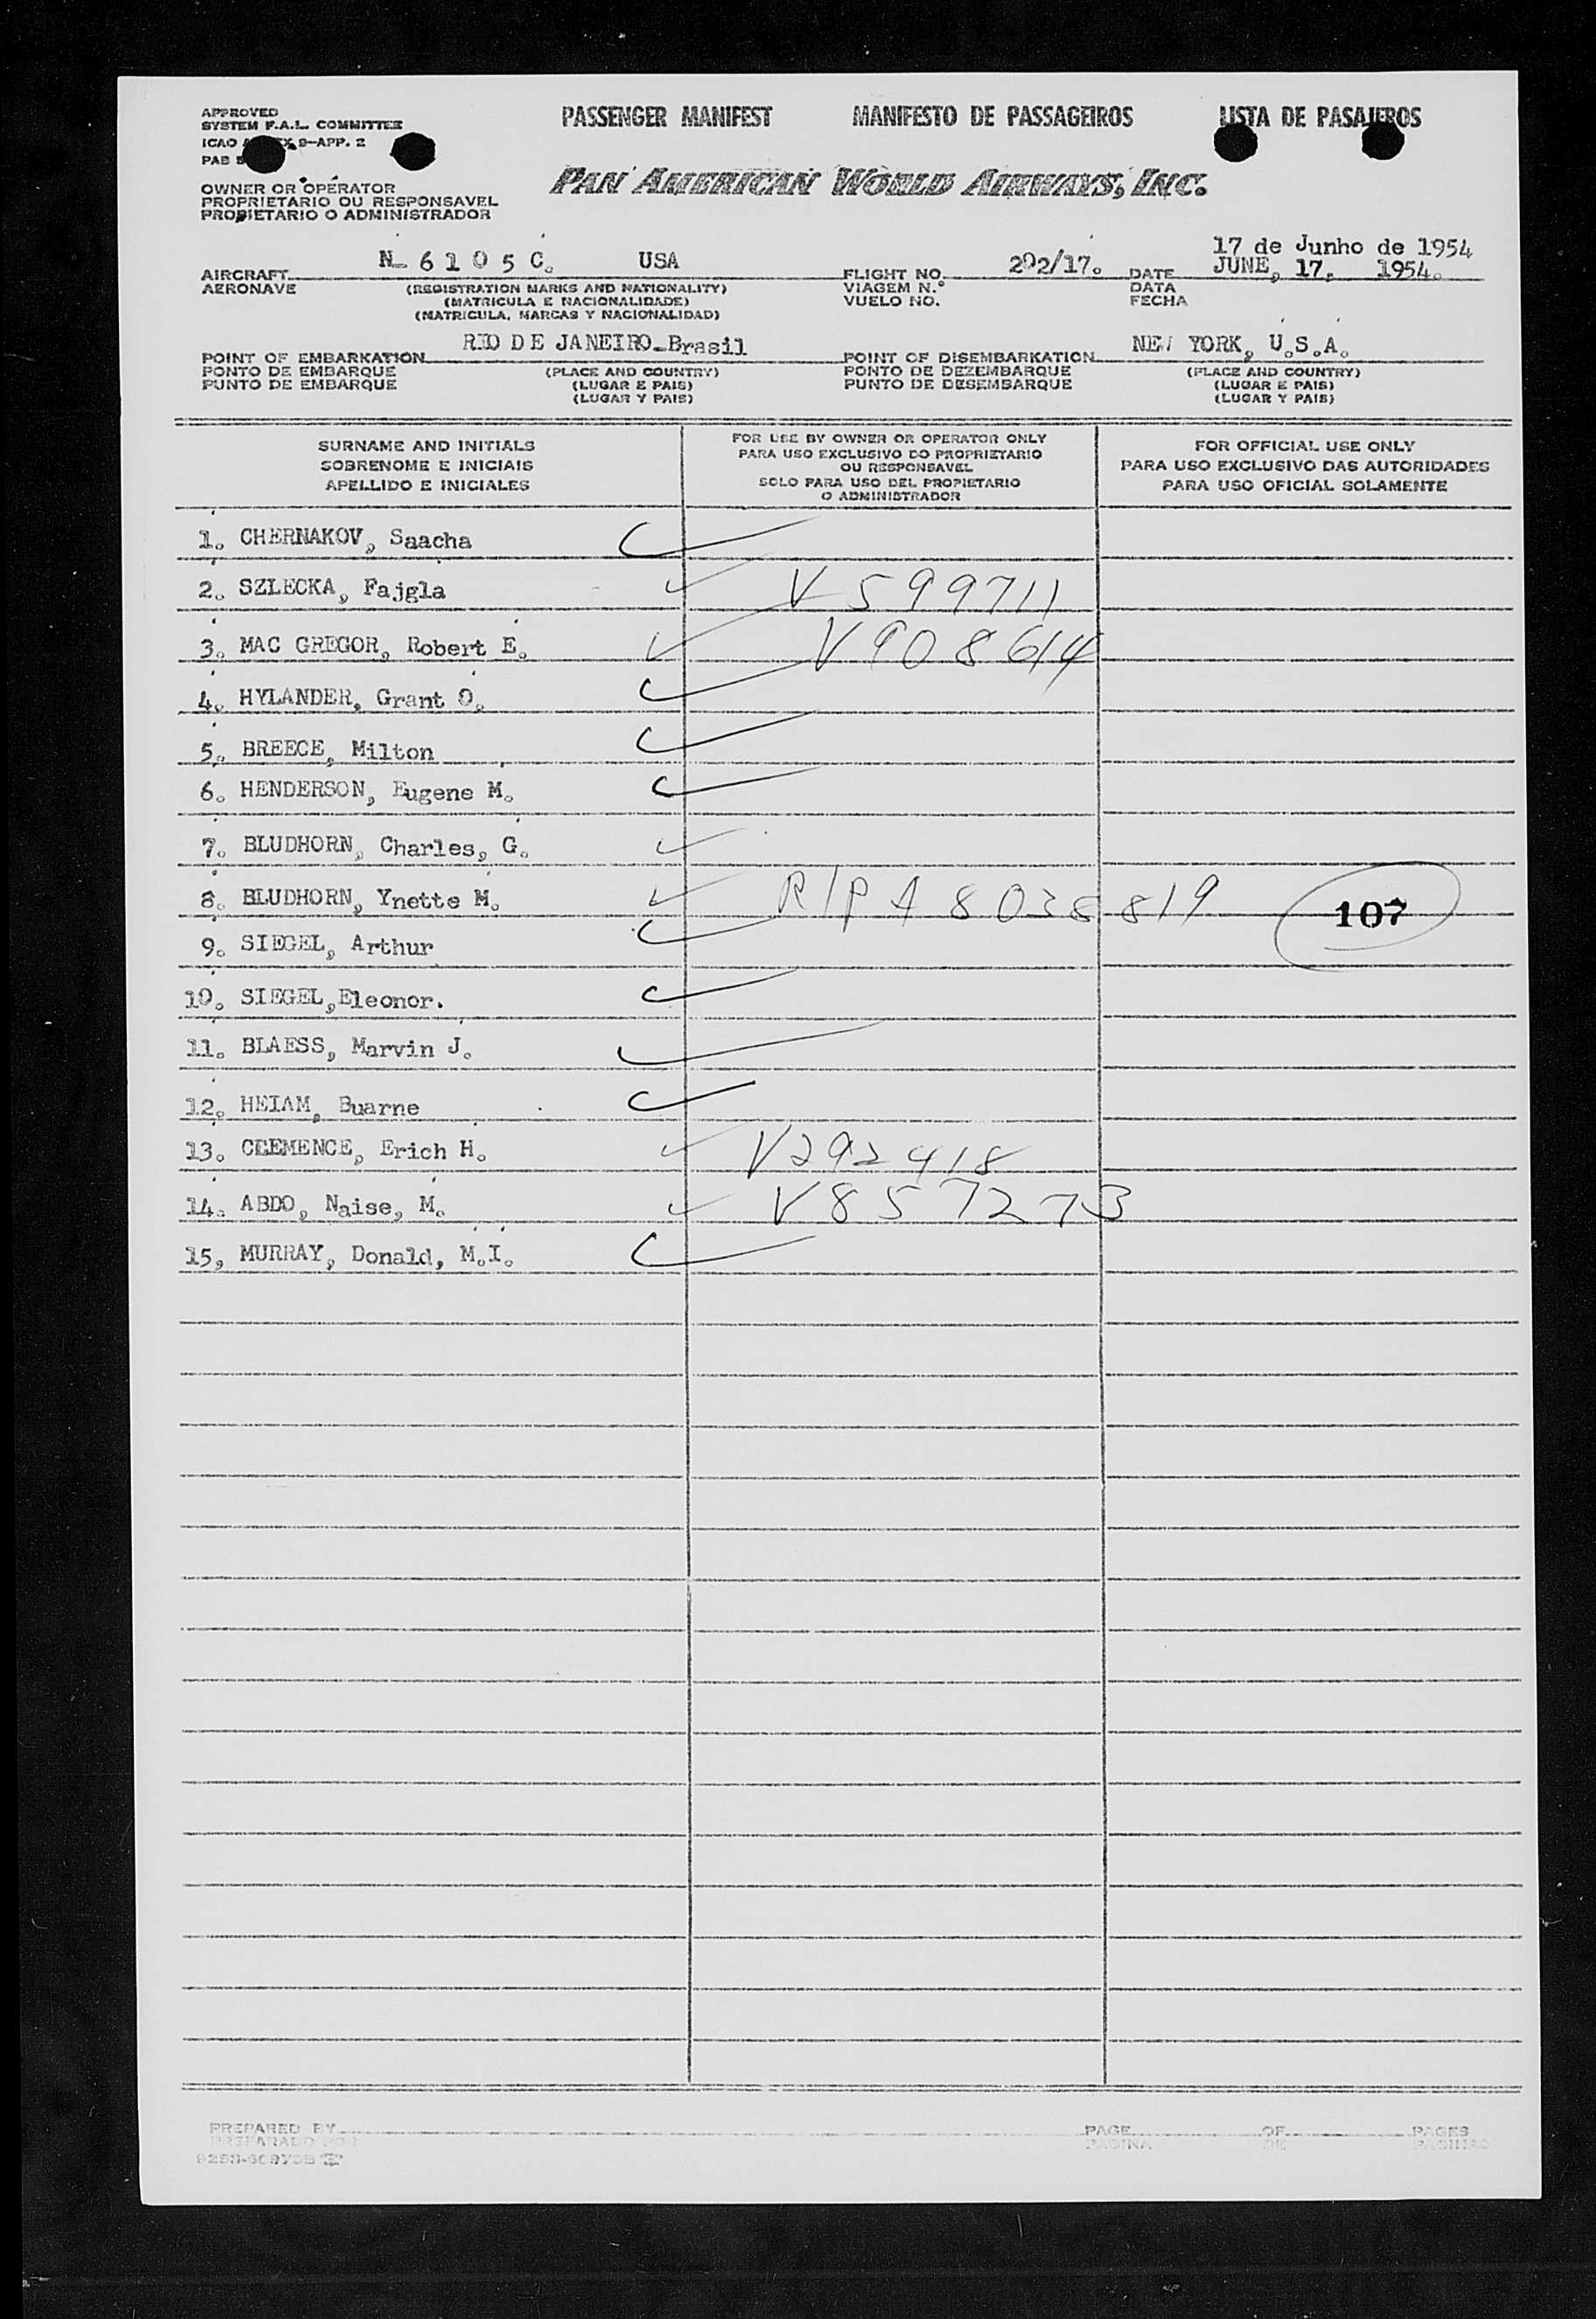 APPROVED
SYSTEM F.A.L. COMMITTEE
ICAO 9-APP. 2
PAB
PASSENGER MANIFEST MANIFESTO DE PASSAGEIROS LISTA DE PASAJEROS
PAN AMERICAN WORLD AIRWAYS, INC.
OWNER OR OPERATOR
PROPRIETARIO OU RESPONSAVEL
PROPIETARIO O ADMINISTRADOR
17 de Junho de 1954
AIRCRAFT N- 6 1 0 5 C. USA FLIGHT NO. 202/17. DATE JUNE, 17, 1954.
AERONAVE (REGISTRATION MARKS AND NATIONALITY) VIAGEM N.º DATA
(MATRICULA E NACIONALIDADE) VUELO NO. FECHA
(MATRICULA, MARCAS Y NACIONALIDAD)
POINT OF EMBARKATION RIO DE JANEIRO-Brasil POINT OF DISEMBARKATION NEW YORK, U.S.A.
PONTO DE EMBARQUE (PLACE AND COUNTRY) PONTO DE DEZEMBARQUE (PLACE AND COUNTRY)
PUNTO DE EMBARQUE (LUGAR E PAIS) PUNTO DE DESEMBARQUE (LUGAR E PAIS)
(LUGAR Y PAIS) (LUGAR Y PAIS)
SURNAME AND INITIALS
SOBRENOME E INICIAIS
APELLIDO E INICIALES
FOR USE BY OWNER OR OPERATOR ONLY
PARA USO EXCLUSIVO DO PROPRIETARIO
OU RESPONSAVEL
SOLO PARA USO DEL PROPIETARIO
O ADMINISTRADOR
FOR OFFICIAL USE ONLY
PARA USO EXCLUSIVO DAS AUTORIDADES
PARA USO OFICIAL SOLAMENTE
1. CHERNAKOV, Saacha
2. SZLECKA, Fajgla V 599711
3. MAC GREGOR, Robert E. V908614
4. HYLANDER, Grant O.
5. BREECE, Milton
6. HENDERSON, Eugene M.
7. BLUDHORN, Charles, G.
8. BLUDHORN, Ynette M. R/P A 8038819 107
9. SIEGEL, Arthur
10. SIEGEL,Eleonor.
11. BLAESS, Marvin J.
12. HEIAM, Buarne
13. CLEMENCE, Erich H. V292418
14. ABDO, Naise, M. V857273
15, MURRAY, Donald, M.I.
PREPARED BY PAGE OF PAGES
PREPARADO POR PAGINA DE